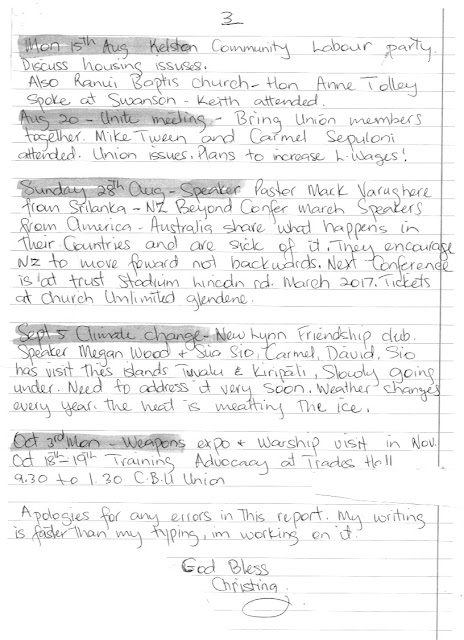 3
Mon 15th Aug Kelston Community Labour party.
Discuss housing issuses.
Also Ranui Baptis church - Hon Anne Tolley
spoke at Swanson - Keith attended.
Aug 20 - Unite meeting - Bring Union members
together. Mike Tween and Carmel Sepuloni
attended. Union issues. Plans to increase L. Wages!
Sunday 28th Aug - Speaker Pastor Mark Varughere
from Srilanka - NZ Beyond Confer march Speakers
from America - Australia share what happens in
their Countries and are sick of it. They encourage
NZ to move foward not backwards. Next Conference
is at trust Stadium lincoln rd. March 2017. Tickets
at church Unlimited glendene.
Sept 5 Climate change - New Lynn Friendship club.
Speaker Megan Wood + Sua Sio, Carmel, David, Sio
has visit thes islands Tuvalu & Kiripati, Slowly going
under. Need to address it very soon. Weather changes
every year. the heat is mealting The ice.
Oct 3rd Mon - Weapons expo + Warship visit in Nov.
Oct 18th - 19th Training Advocacy at Trades Hall
9.30 to 1.30 C.B.U Union
Apologies for any errors in This report. My writing
is faster than my typing, im working on it.
God Bless
Christina